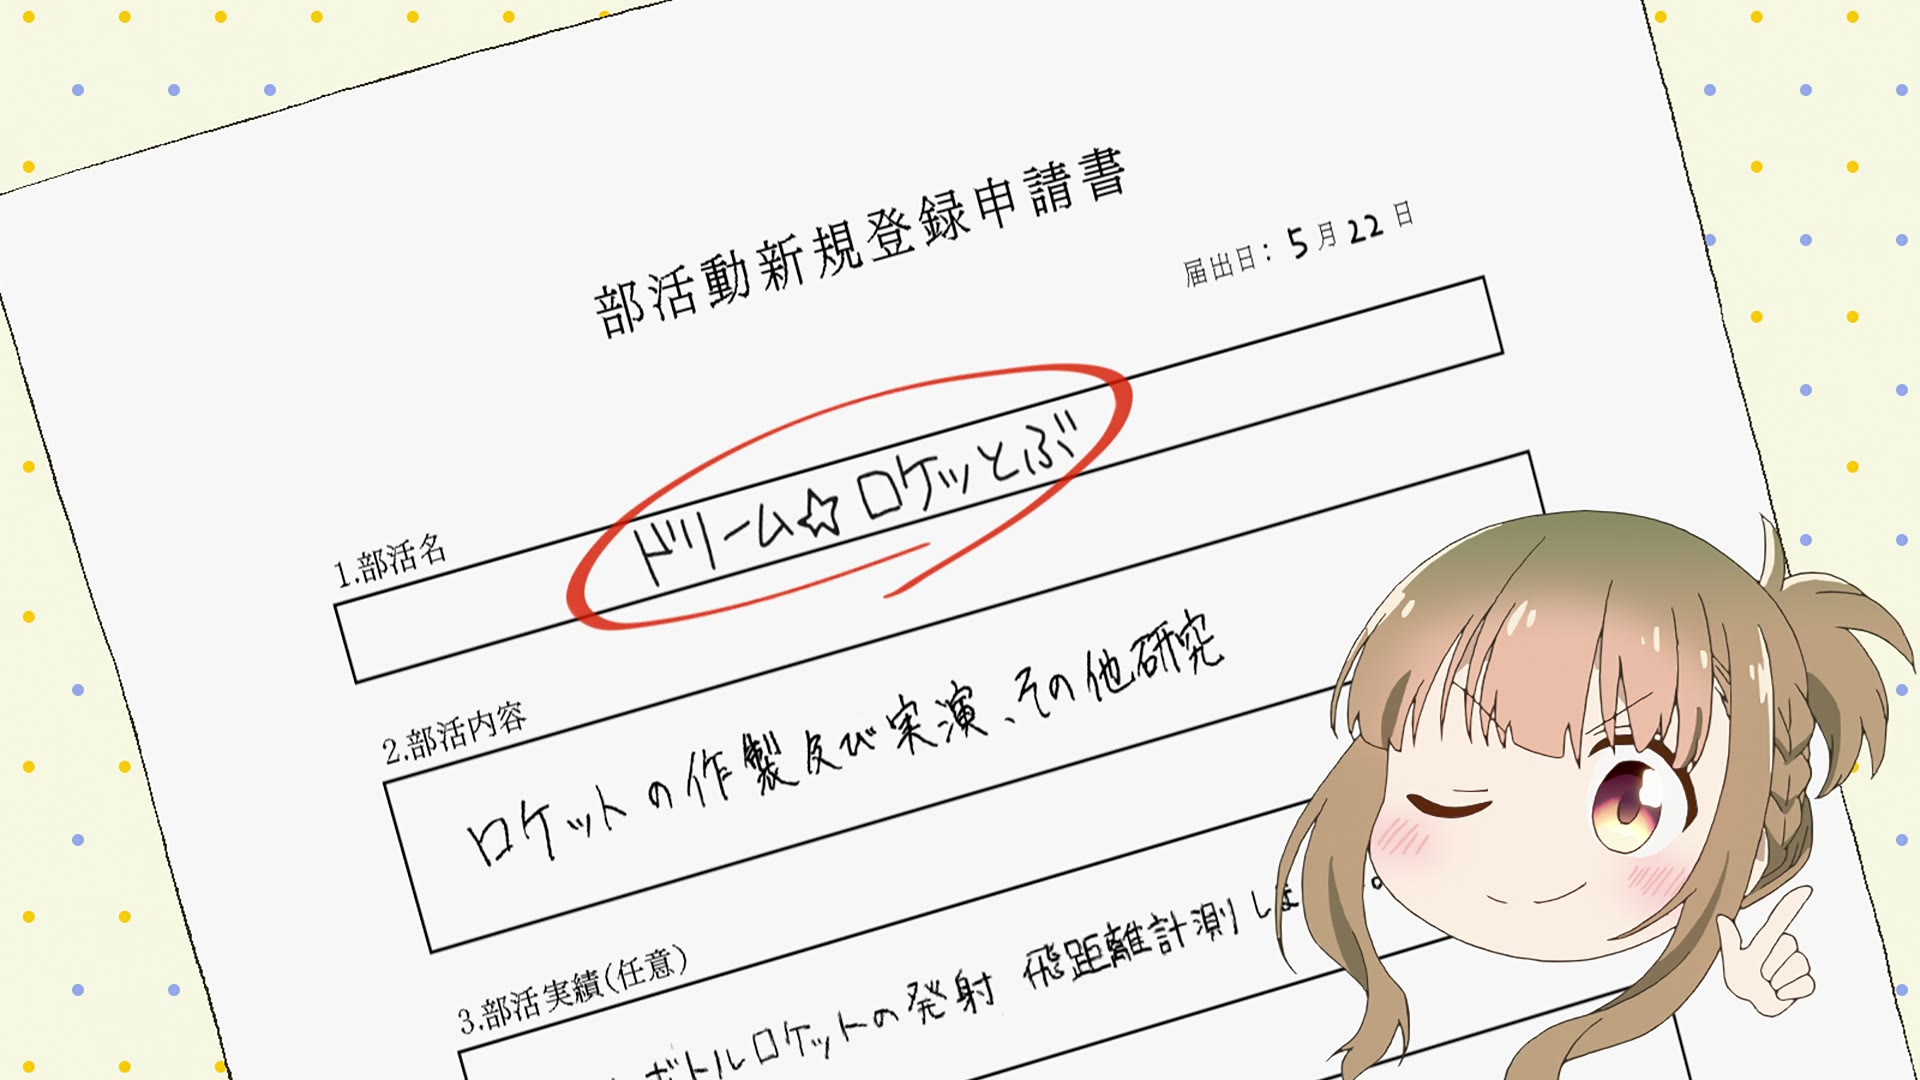 部活動新規登録申請書
届出日：5月22日
1.部活名
ドリーム☆ロケッとぶ
2.部活内容
ロケットの作製及び実演、その他研究
3.部活実績(任意)
ボトルロケットの発射 飛距離計測しま